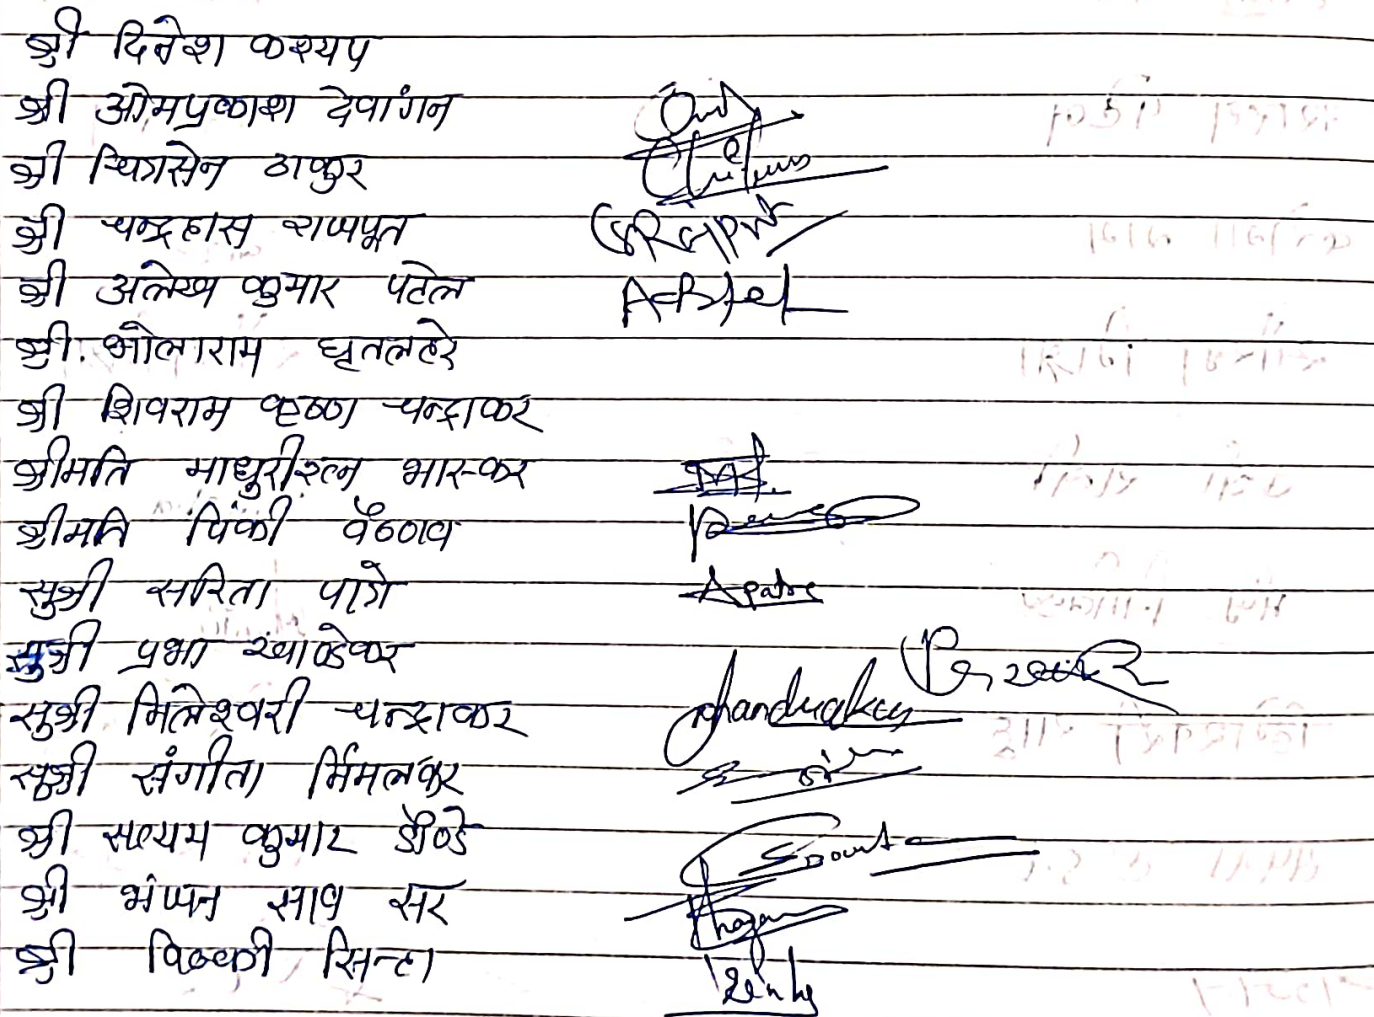 श्री दिनेश कश्यप
श्री ओमप्रकाश देवांगन
श्री चित्रसेन ठाकुर
श्री चन्द्रहास राजपूत
श्री अलेख कुमार पटेल A-Patel
श्री. भोलाराम घृतलहरे
श्री शिवराम कृष्ण चन्द्राकर
श्रीमति माधुरीरत्न भास्कर
श्रीमति पिंकी वैष्णव
सुश्री सरिता पात्रे
सुश्री प्रभा खाण्डेकर
सुश्री मिलेश्वरी चन्द्राकर Chandrakar
सुश्री संगीता निर्मलकर
श्री सत्यम कुमार डौण्डे
श्री भंजन साव सर
श्री विक्की सिन्हा